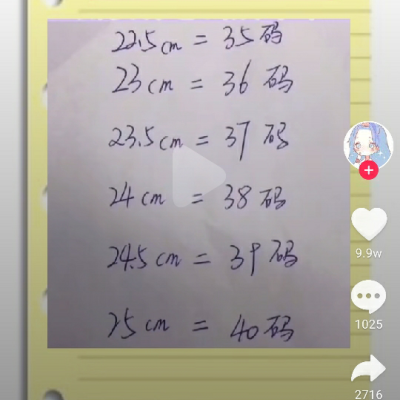 22.5cm = 35码
23cm = 36码
23.5cm = 37码
24cm = 38码
24.5cm = 39码
25cm = 40码
9.9w
1025
2716